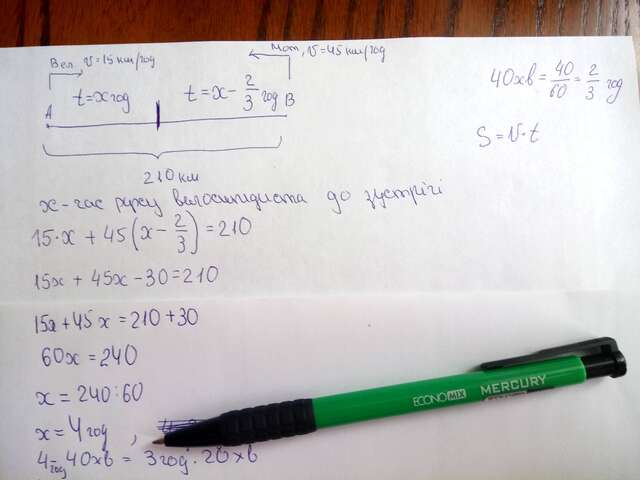 Вел. v=15 км/год
Мот. v=45 км/год
t=x год
t=x-2/3 год
A
B
210 км
40 хв = 40/60 = 2/3 год
S=v·t
x - час руху велосипедиста до зустрічі
15·x+45(x-2/3)=210
15x+45x-30=210
15x+45x=210+30
60x=240
x=240:60
x=4 год,
4 год - 40 хв = 3 год. 20 хв
ECONOMIX MERCURY